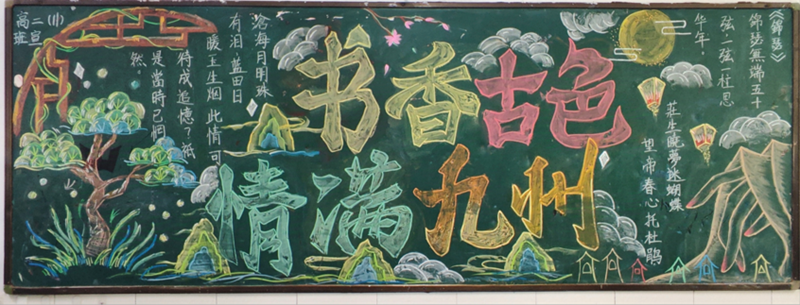 《錦瑟》
錦瑟無端五十
弦一弦一柱思
华年
莊生曉夢迷蝴蝶
望帝春心托杜鵑
书香古色
情满九州
沧海月明珠
有泪蓝田日
暖玉生烟此情可
待成追憶？祇
是當時已惘
然
高二(11)班宣